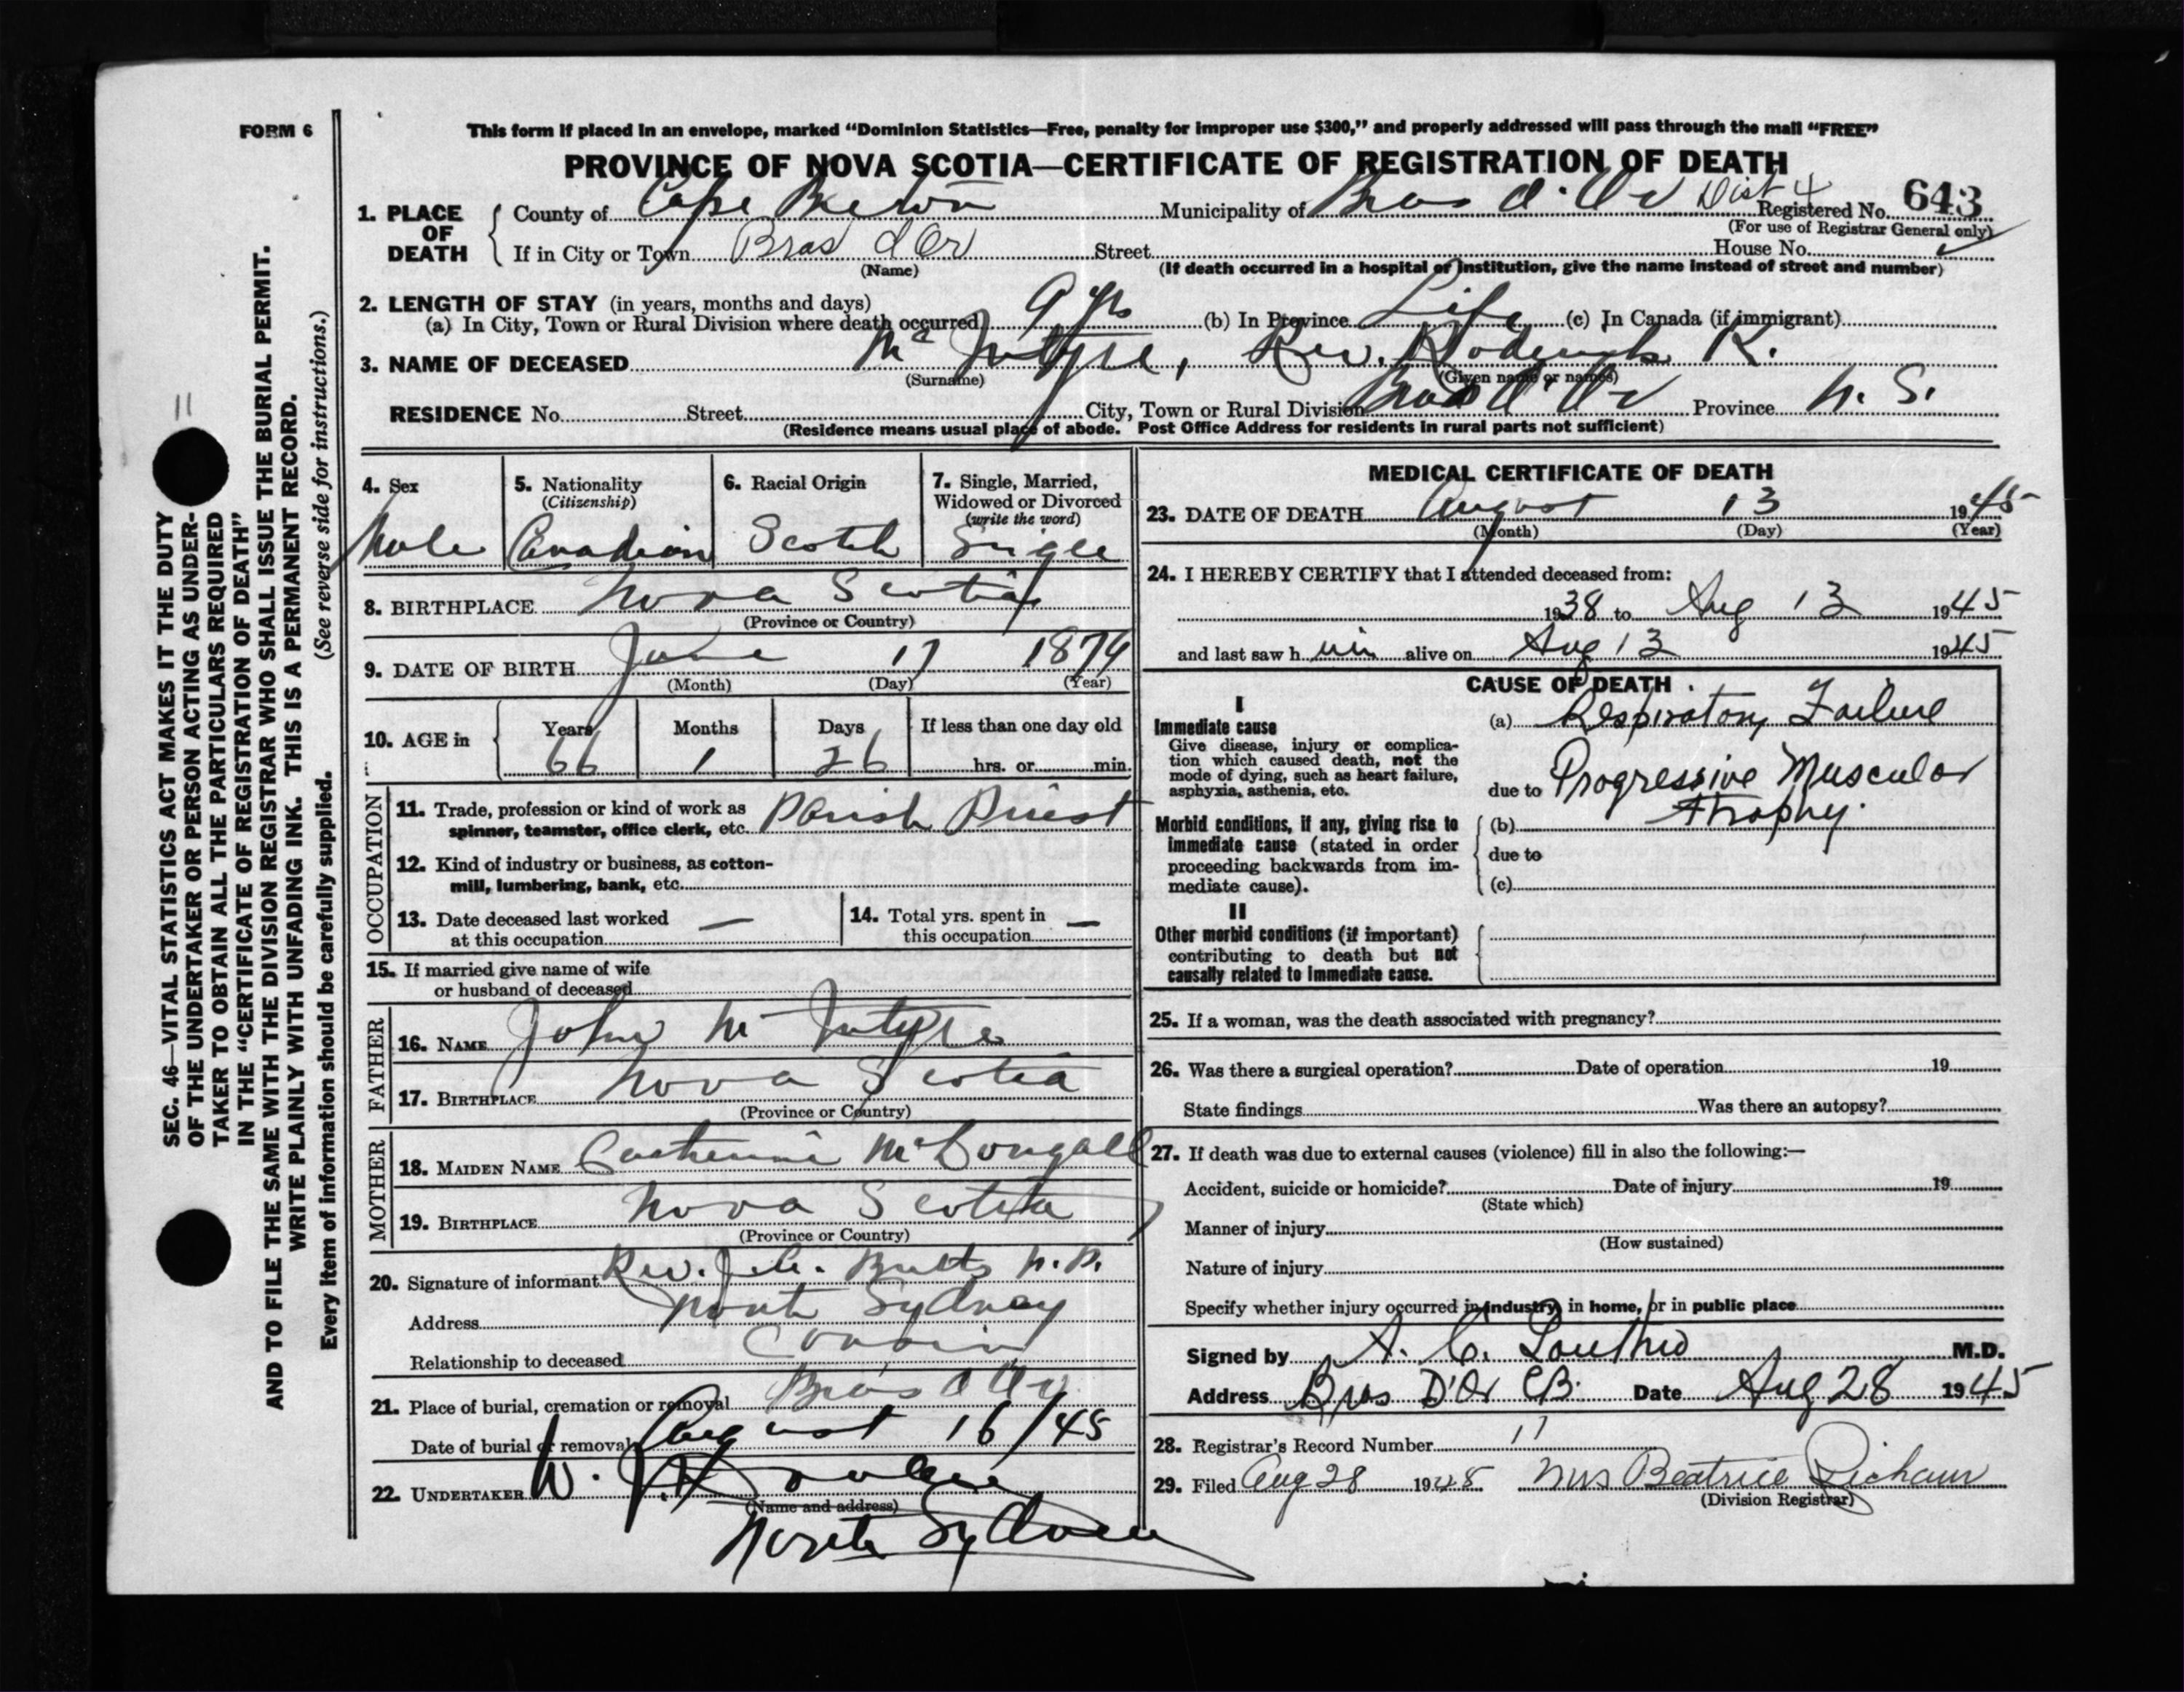 FORM 6
This form if placed in an envelope, marked “Dominion Statistics—Free, penalty for improper use $300,” and properly addressed will pass through the mail “FREE”
PROVINCE OF NOVA SCOTIA—CERTIFICATE OF REGISTRATION OF DEATH
1. PLACE OF DEATH County of Cape Breton Municipality of Bras d'Or Dist 4 Registered No. 643
(For use of Registrar General only)
If in City or Town Bras d'Or Street House No.
(Name) (If death occurred in a hospital or institution, give the name instead of street and number)
2. LENGTH OF STAY (in years, months and days)
(a) In City, Town or Rural Division where death occurred 9 yrs (b) In Province Life (c) In Canada (if immigrant)
3. NAME OF DECEASED McIntyre, Rev. Roderick K.
(Surname) (Given name or names)
RESIDENCE No. Street City, Town or Rural Division Bras d'Or Province N. S.
(Residence means usual place of abode. Post Office Address for residents in rural parts not sufficient)
4. Sex Male
5. Nationality (Citizenship) Canadian
6. Racial Origin Scotch
7. Single, Married, Widowed or Divorced (write the word) Single
8. BIRTHPLACE Nova Scotia
(Province or Country)
9. DATE OF BIRTH June 17 1879
(Month) (Day) (Year)
10. AGE in Years 66 Months 1 Days 26 If less than one day old hrs. or min.
OCCUPATION
11. Trade, profession or kind of work as spinner, teamster, office clerk, etc. Parish Priest
12. Kind of industry or business, as cotton-mill, lumbering, bank, etc.
13. Date deceased last worked at this occupation —
14. Total yrs. spent in this occupation —
15. If married give name of wife or husband of deceased
FATHER
16. NAME John McIntyre
17. BIRTHPLACE Nova Scotia
(Province or Country)
MOTHER
18. MAIDEN NAME Catherine McDougall
19. BIRTHPLACE Nova Scotia
(Province or Country)
20. Signature of informant Rev. Butts P.P.
Address North Sydney
Relationship to deceased Cousin
21. Place of burial, cremation or removal Bras d'Or
Date of burial or removal August 16/45
22. UNDERTAKER W. J.
(Name and address)
North Sydney
MEDICAL CERTIFICATE OF DEATH
23. DATE OF DEATH August 13 1945
(Month) (Day) (Year)
24. I HEREBY CERTIFY that I attended deceased from:
1938 to Aug 13 1945
and last saw him alive on Aug 13 1945
CAUSE OF DEATH
I
Immediate cause
Give disease, injury or complication which caused death, not the mode of dying, such as heart failure, asphyxia, asthenia, etc.
(a) Respiratory Failure
due to Progressive Muscular Atrophy.
Morbid conditions, if any, giving rise to immediate cause (stated in order proceeding backwards from immediate cause).
(b)
due to
(c)
II
Other morbid conditions (if important) contributing to death but not causally related to immediate cause.
25. If a woman, was the death associated with pregnancy?
26. Was there a surgical operation? Date of operation 19
State findings Was there an autopsy?
27. If death was due to external causes (violence) fill in also the following:—
Accident, suicide or homicide? Date of injury 19
(State which)
Manner of injury
(How sustained)
Nature of injury
Specify whether injury occurred in industry, in home, or in public place
Signed by A. C. M.D.
Address Bras D'Or CB. Date Aug 28 1945
28. Registrar's Record Number 11
29. Filed Aug 28 1945 Mrs Beatrice
(Division Registrar)
11
SEC. 46—VITAL STATISTICS ACT MAKES IT THE DUTY
OF THE UNDERTAKER OR PERSON ACTING AS UNDER-
TAKER TO OBTAIN ALL THE PARTICULARS REQUIRED
IN THE “CERTIFICATE OF REGISTRATION OF DEATH”
AND TO FILE THE SAME WITH THE DIVISION REGISTRAR WHO SHALL ISSUE THE BURIAL PERMIT.
WRITE PLAINLY WITH UNFADING INK. THIS IS A PERMANENT RECORD.
Every item of information should be carefully supplied. (See reverse side for instructions.)